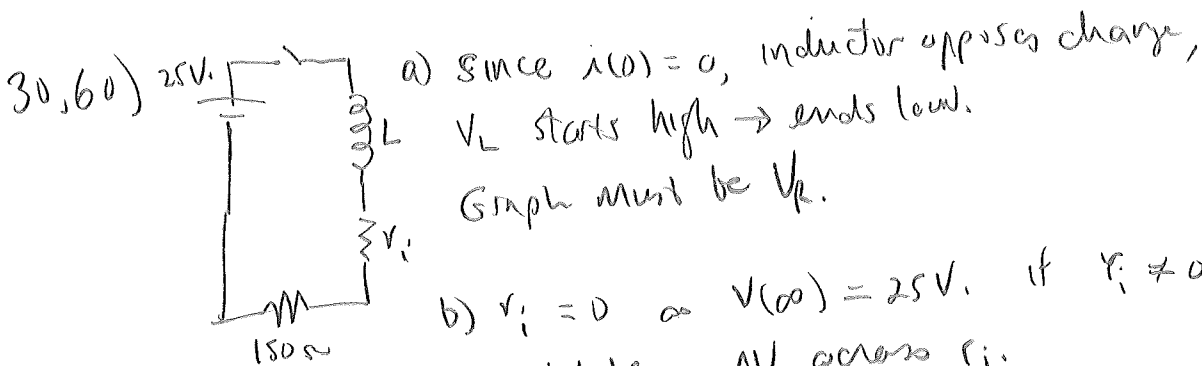 30,60) 25V.
a) Since i(0) = 0, inductor opposes change,
L
V_L starts high → ends low.
Graph must be V_R.
r_i
b) r_i = 0 as V(∞) = 25V. if r_i ≠ 0
150Ω
ΔV across r_i.